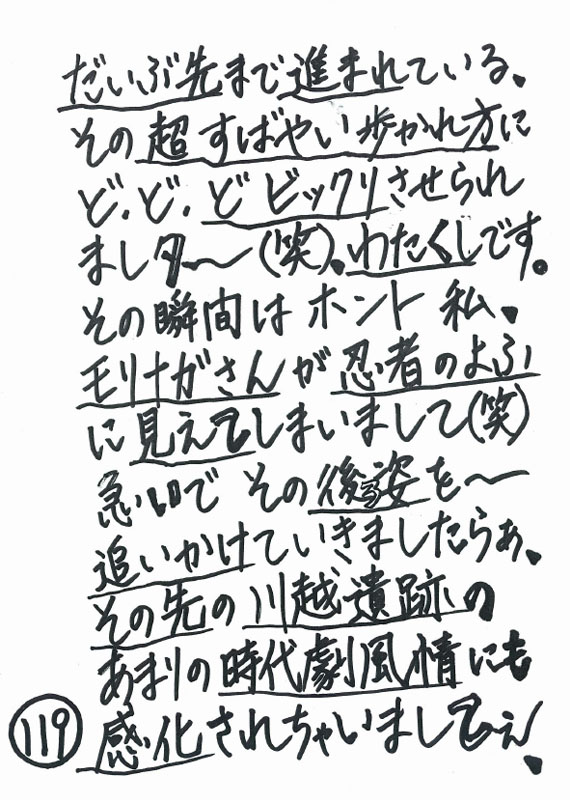 だいぶ先まで進まれている、
その超すばやい歩かれ方に
ど、ど、どビックリさせられ
ましタ〜(笑)、わたくしです。
その瞬間はホント私、
モリナガさんが忍者のよふ
に見えてしまいまして(笑)
急いで その後姿を〜
追いかけていきましたらぁ、
その先の川越遺跡の
あまりの時代劇風情にも
感化されちゃいましてぇ、
119